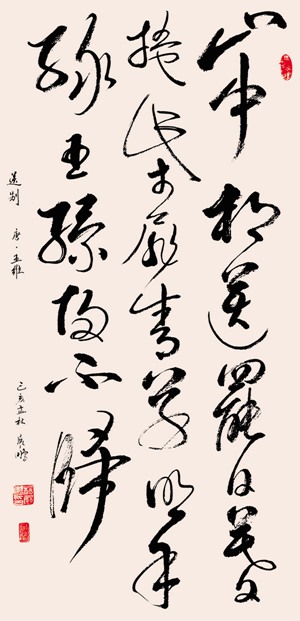 山中相送罷日暮
掩柴扉春草明年
綠王孫歸不歸
送别 唐·王維
己亥秋